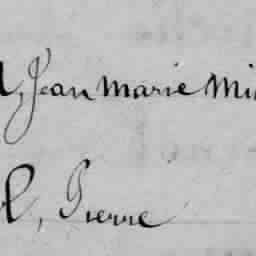 , Jean Marie Mi
, Pierre